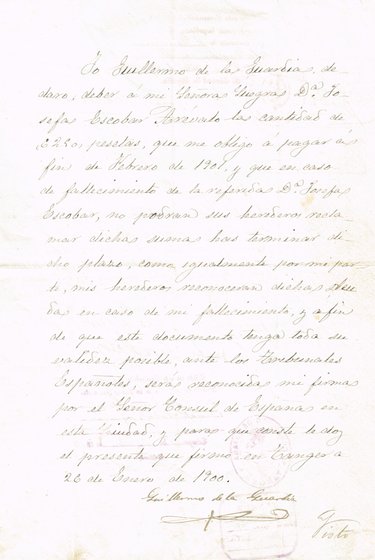 Yo Guillermo de la Guardia, de-
claro, deber á mi Señora Suegra Dª. Jo-
sefa Escobar Arevalo la cantidad de
2250 pesetas, que me obligo á pagar á
fin de Febrero de 1901, y que en caso
de fallecimiento de la referida Dª. Josefa
Escobar, no podran sus herederos recla-
mar dicha suma has terminar di-
cho plazo, como igualmente por mi par-
te, mis herederos reconoceran dicha deu-
da en caso de mi fallecimiento, y á fin
de que este documento tenga toda su
validez posible, ante los Tribunales
Españoles, será reconocida mi firma
por el Señor Consul de España en
esta Ciudad, y para que conste le doy
el presente que firmo en Tanger a
26 de Enero de 1900.
Guillermo de la Guardia
Visto